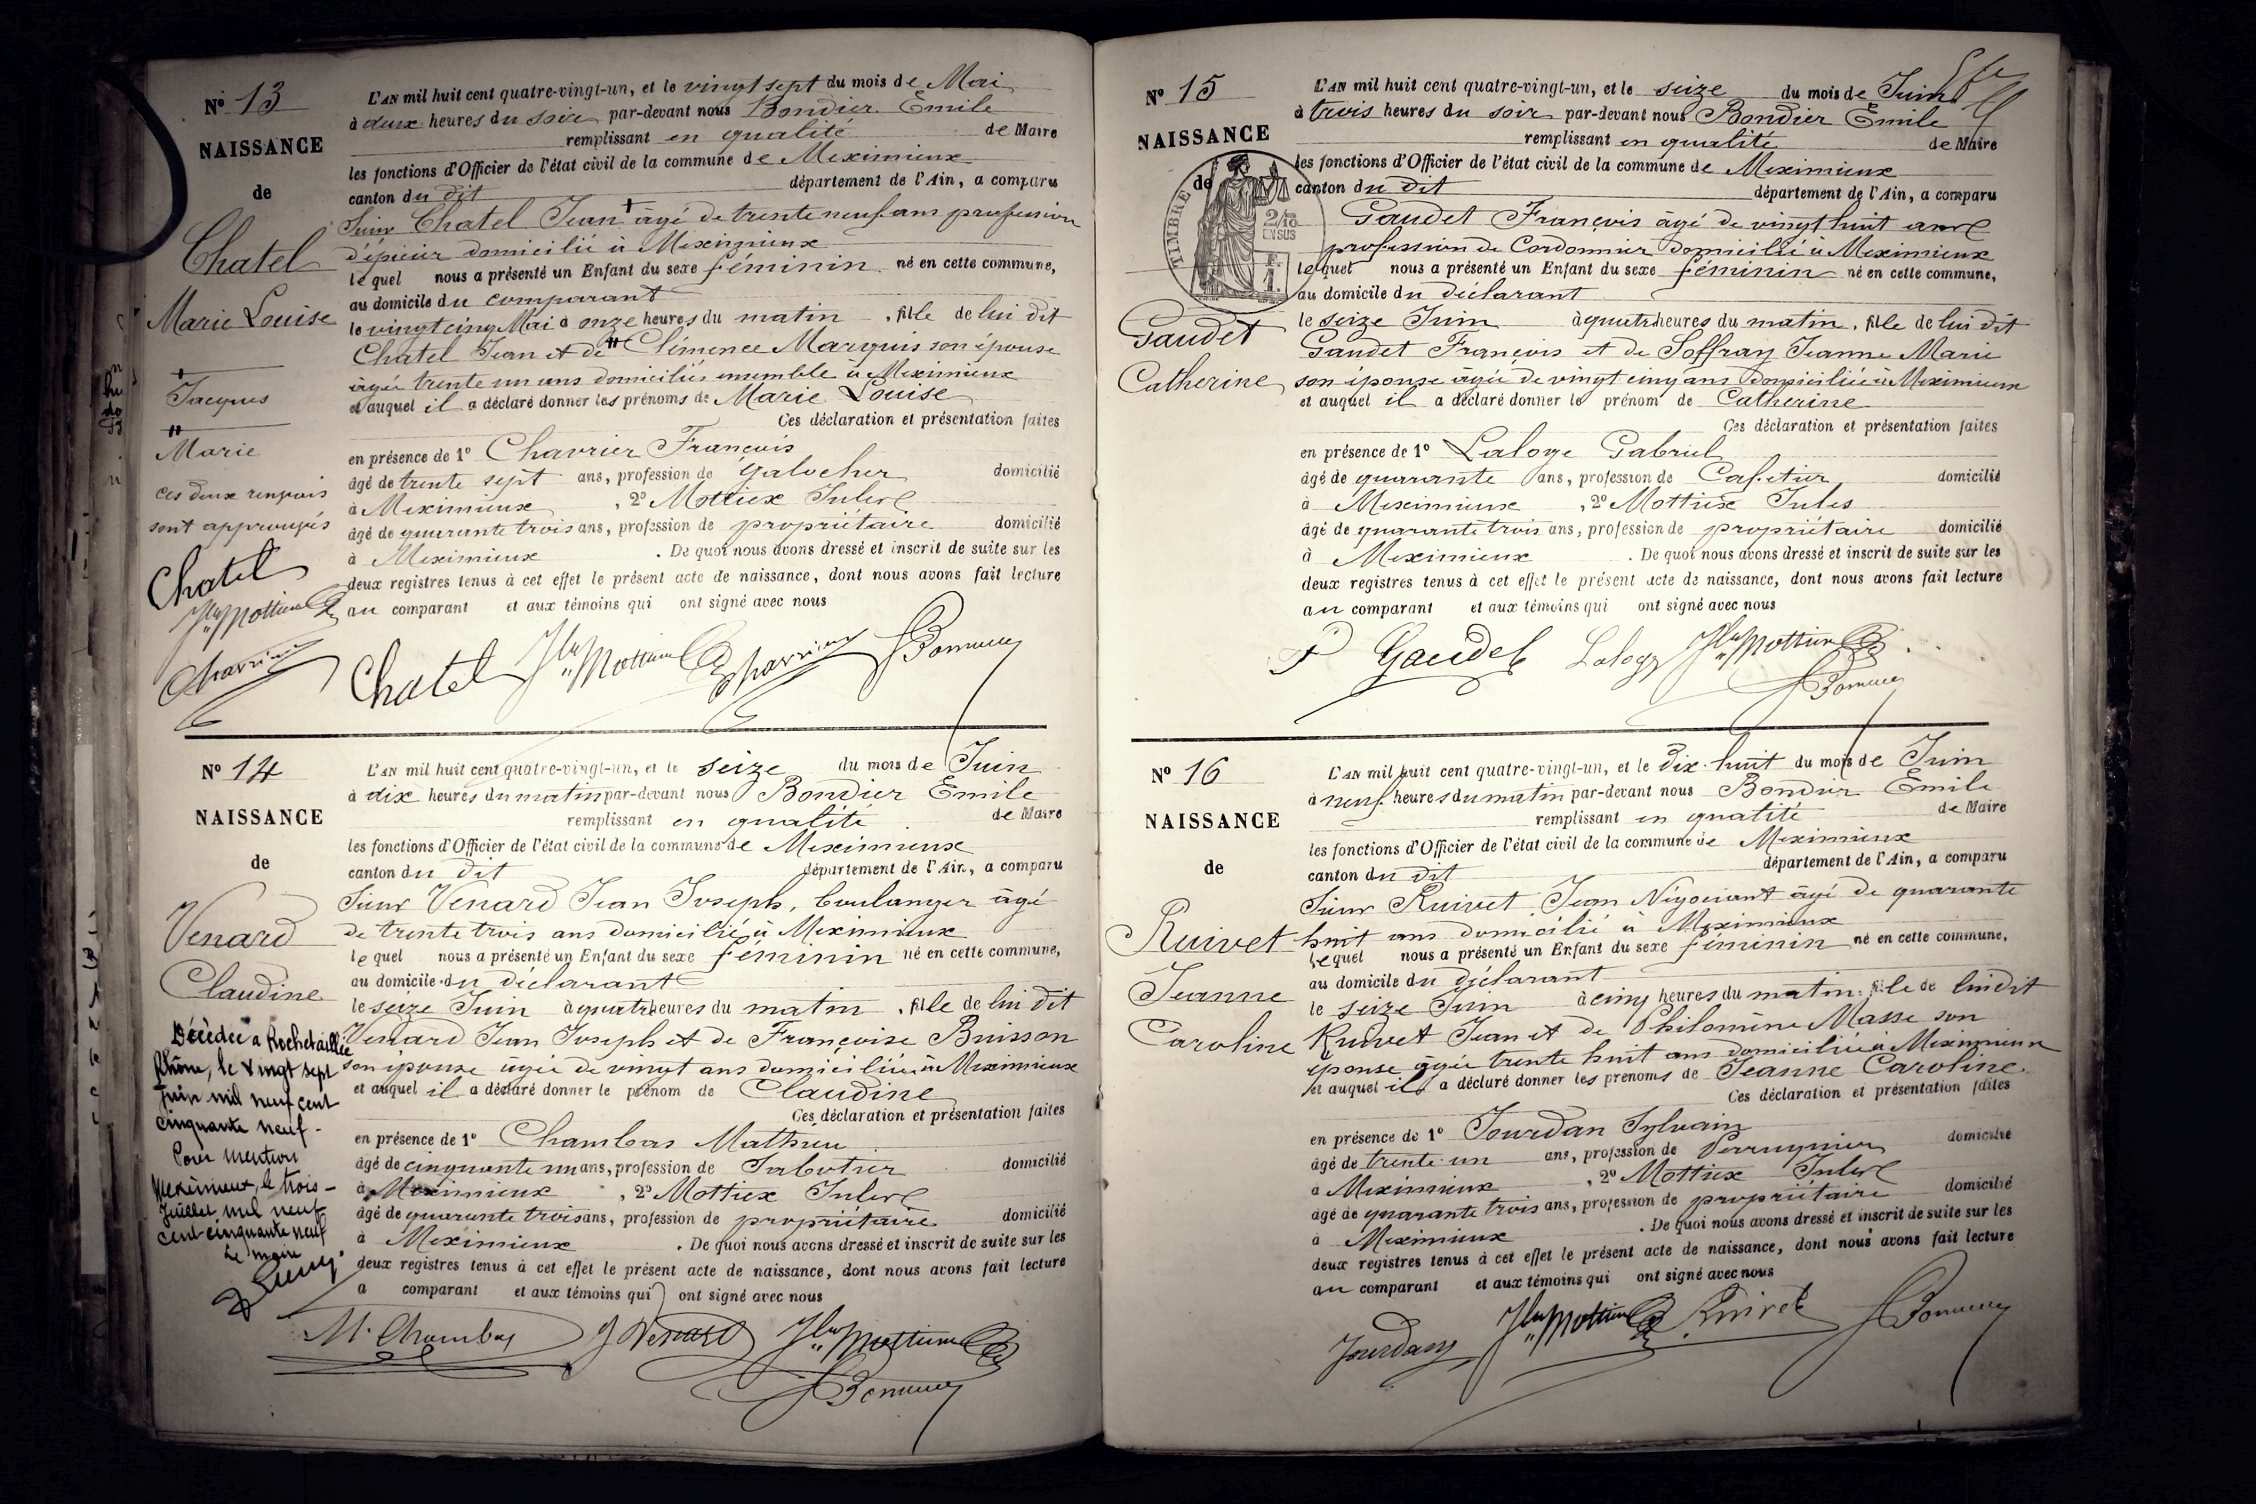 N° 13
NAISSANCE
de
Chatel
Marie Louise
Jacques
Marie
ces deux renvois
sont approuvés
Chatel
Jles Mottieux
Chavrier
L'AN mil huit cent quatre-vingt-un, et le vingt sept du mois de Mai
à deux heures du soir par-devant nous Bondier Emile
remplissant en qualité de Maire
les fonctions d'Officier de l'état civil de la commune de Meximieux
canton du dit département de l'Ain, a comparu
Sieur Chatel Jean âgé de trente neuf ans profession
d'épicier domicilié à Meximieux
lequel nous a présenté un Enfant du sexe féminin né en cette commune,
au domicile du comparant
le vingt cinq Mai à onze heures du matin, fille de lui dit
Chatel Jean et de Clémence Marquis son épouse
âgée trente un ans domiciliés ensemble à Meximieux
et auquel il a déclaré donner les prénoms de Marie Louise
Ces déclaration et présentation faites
en présence de 1° Chavrier François
âgé de trente sept ans, profession de galocher domicilié
à Meximieux, 2° Mottiex Jules
âgé de quarante trois ans, profession de propriétaire domicilié
à Meximieux. De quoi nous avons dressé et inscrit de suite sur les
deux registres tenus à cet effet le présent acte de naissance, dont nous avons fait lecture
au comparant et aux témoins qui ont signé avec nous
Chatel Jles Mottieux Chavrier
N° 14
NAISSANCE
de
Venard
Claudine
Décédée à Rochetaillée
Rhône, le vingt sept
Juin mil neuf cent
cinquante neuf -
Pour mention
Meximieux, le trois -
Juillet mil neuf
cent cinquante neuf
Le maire
L'AN mil huit cent quatre-vingt-un, et le seize du mois de Juin
à dix heures du matin par-devant nous Bondier Emile
remplissant en qualité de Maire
les fonctions d'Officier de l'état civil de la commune de Meximieux
canton du dit département de l'Ain, a comparu
Sieur Venard Jean Joseph, boulanger âgé
de trente trois ans domicilié à Meximieux
lequel nous a présenté un Enfant du sexe féminin né en cette commune,
au domicile du déclarant
le seize Juin à quatre heures du matin, fille de lui dit
Venard Jean Joseph et de Françoise Buisson
son épouse âgée de vingt ans domiciliée à Meximieux
et auquel il a déclaré donner le prénom de Claudine
Ces déclaration et présentation faites
en présence de 1° Chambas Mathieu
âgé de cinquante un ans, profession de Sabotier domicilié
à Meximieux, 2° Mottiex Jules
âgé de quarante trois ans, profession de propriétaire domicilié
à Meximieux. De quoi nous avons dressé et inscrit de suite sur les
deux registres tenus à cet effet le présent acte de naissance, dont nous avons fait lecture
a comparant et aux témoins qui ont signé avec nous
M. Chambas J Venard Jles Mottieux
N° 15
NAISSANCE
de
TIMBRE
2/10 EN SUS
Gaudet
Catherine
L'AN mil huit cent quatre-vingt-un, et le seize du mois de Juin
à trois heures du soir par-devant nous Bondier Emile
remplissant en qualité de Maire
les fonctions d'Officier de l'état civil de la commune de Meximieux
canton du dit département de l'Ain, a comparu
Gaudet François âgé de vingt huit ans
profession de Cordonnier domicilié à Meximieux
lequel nous a présenté un Enfant du sexe féminin né en cette commune,
au domicile du déclarant
le seize Juin à quatre heures du matin, fille de lui dit
Gaudet François et de Soffray Jeanne Marie
son épouse âgée de vingt cinq ans domiciliée à Meximieux
et auquel il a déclaré donner le prénom de Catherine
Ces déclaration et présentation faites
en présence de 1° Laloge Gabriel
âgé de quarante ans, profession de Cafetier domicilié
à Meximieux, 2° Mottiex Jules
âgé de quarante trois ans, profession de propriétaire domicilié
à Meximieux. De quoi nous avons dressé et inscrit de suite sur les
deux registres tenus à cet effet le présent acte de naissance, dont nous avons fait lecture
au comparant et aux témoins qui ont signé avec nous
Gaudet Laloge Jles Mottieux
N° 16
NAISSANCE
de
Ruivet
Jeanne
Caroline
L'AN mil huit cent quatre-vingt-un, et le dix-huit du mois de Juin
à neuf heures du matin par-devant nous Bondier Emile
remplissant en qualité de Maire
les fonctions d'Officier de l'état civil de la commune de Meximieux
canton du dit département de l'Ain, a comparu
Sieur Ruivet Jean Négociant âgé de quarante
huit ans domicilié à Meximieux
lequel nous a présenté un Enfant du sexe féminin né en cette commune,
au domicile du déclarant
le seize Juin à cinq heures du matin, fille de lui dit
Ruivet Jean et de Philomène Masse son
épouse âgée trente huit ans domiciliée à Meximieux
et auquel il a déclaré donner les prénoms de Jeanne Caroline
Ces déclaration et présentation faites
en présence de 1° Jourdan Sylvain
âgé de trente un ans, profession de Perruquier domicilié
à Meximieux, 2° Mottiex Jules
âgé de quarante trois ans, profession de propriétaire domicilié
à Meximieux. De quoi nous avons dressé et inscrit de suite sur les
deux registres tenus à cet effet le présent acte de naissance, dont nous avons fait lecture
au comparant et aux témoins qui ont signé avec nous
Jourdan Jles Mottieux Ruivet